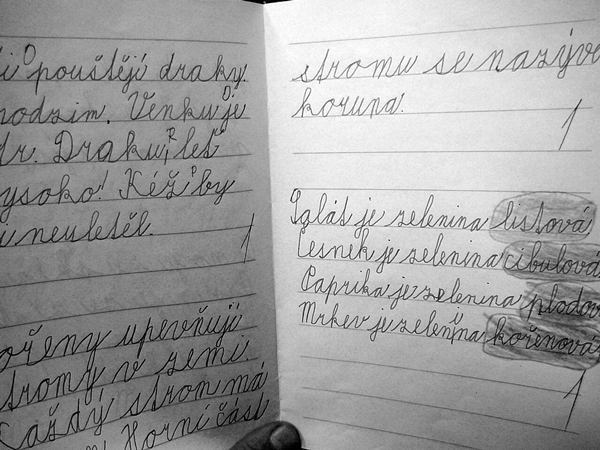 i pouštějí draky.
podzim. Venku je
Draku, leť
vysoko! Kéž by
i neuletěl.
1
kořeny upevňují
stromy v zemi.
Každý strom má
Horní část
stromu se nazýve
koruna.
1
Salát je zelenina listová
Česnek je zelenina cibulová
Paprika je zelenina plodov
Mrkev je zelenina kořenová
1